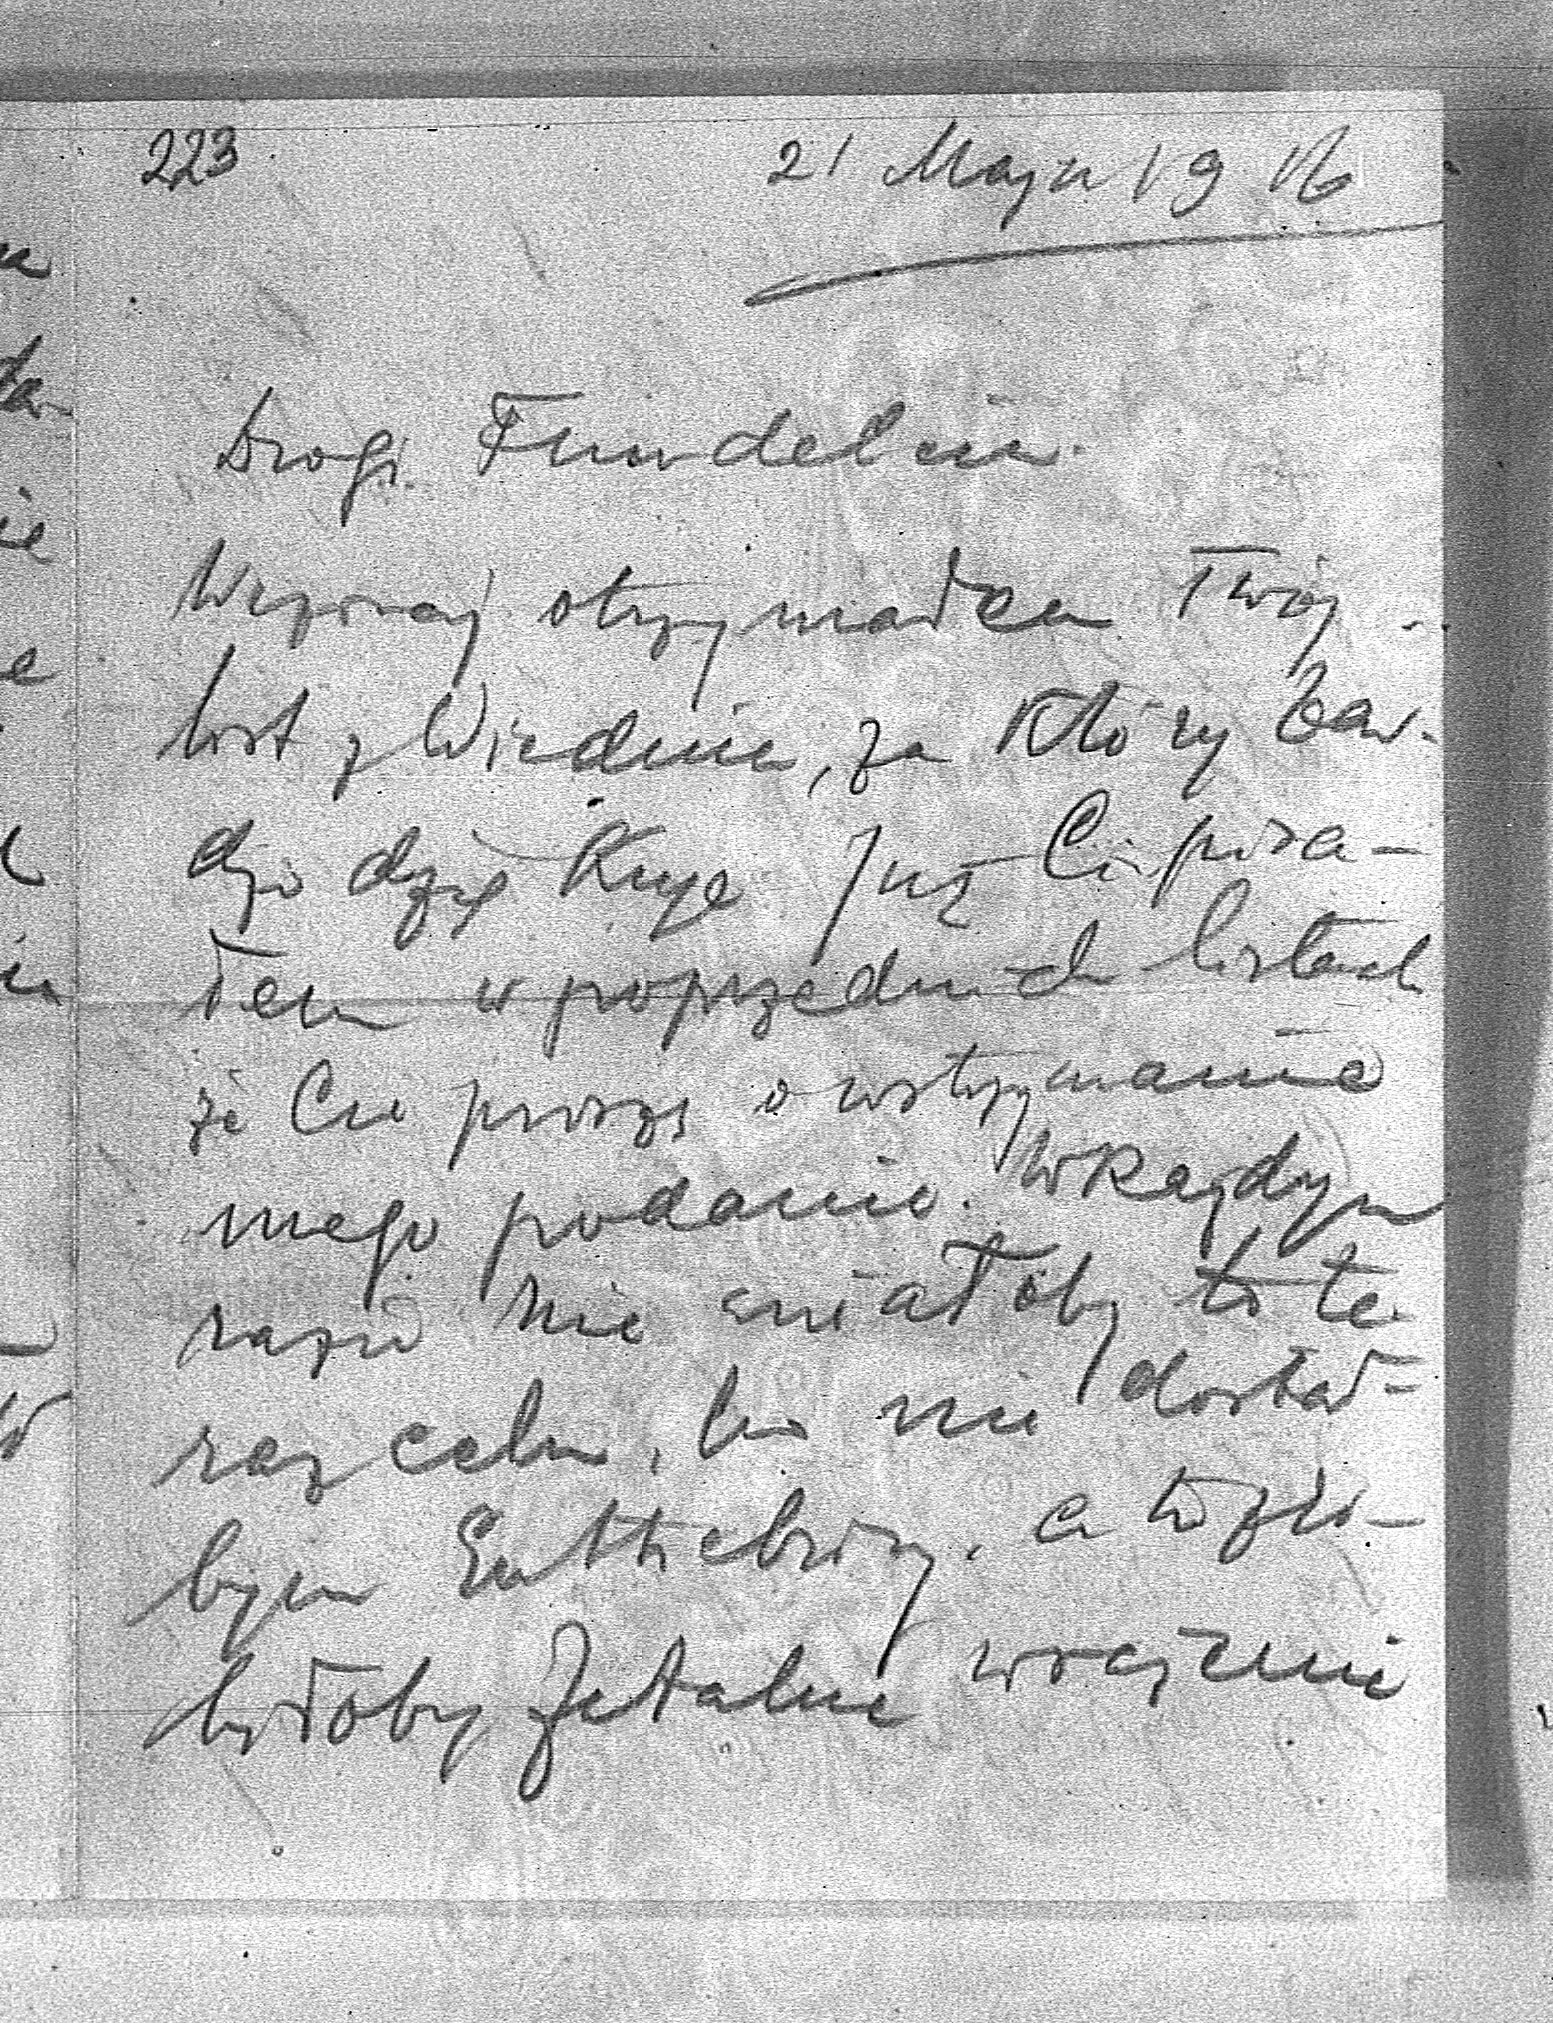 223
21 Maja 1916
Drogi Fundelciu
Wczoraj otrzymałem Twój
list z Wiednia, za który bar-
dzo dziękuję Już Ci pisa-
łem w poprzednich listach
że Cie proszę o wstrzymanie
mego podania. W każdym
razie nie miałoby to te
raz celu, bo nie dostał-
bym Enthebung, a to zro-
byłoby fatalne wrażenie